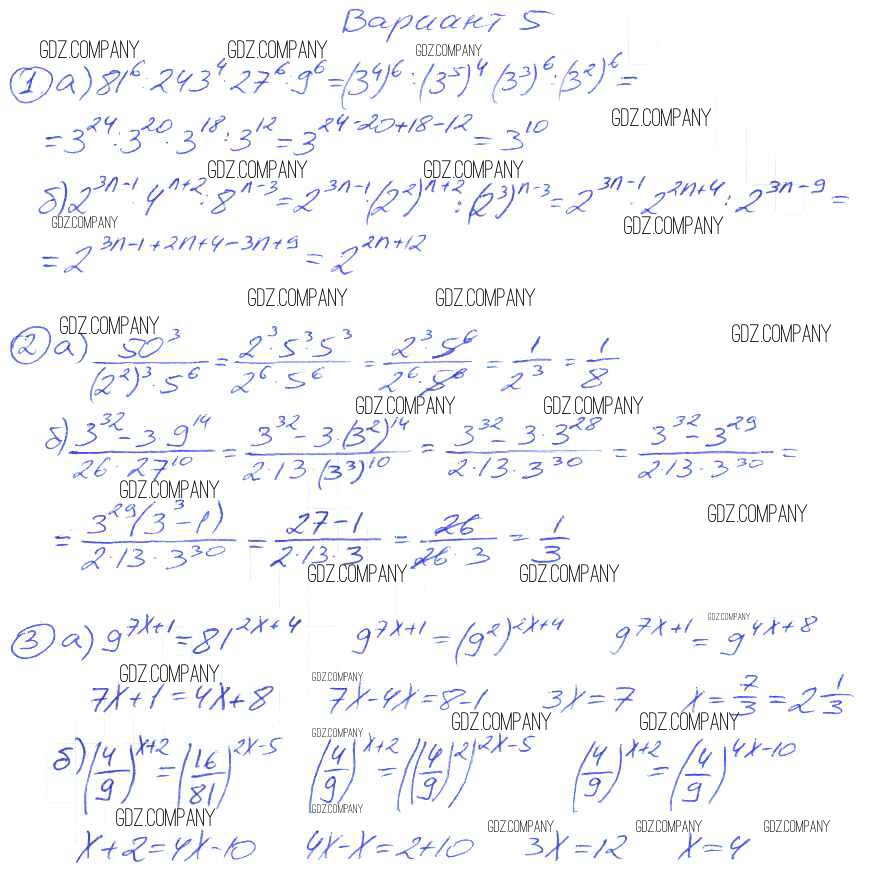 Вариант 5
GDZ.COMPANY GDZ.COMPANY GDZ.COMPANY
① а) 81⁶ : 243⁴ · 27⁶ : 9⁶ = (3⁴)⁶ : (3⁵)⁴ (3³)⁶ : (3²)⁶ =
GDZ.COMPANY
= 3²⁴ : 3²⁰ · 3¹⁸ : 3¹² = 3²⁴⁻²⁰⁺¹⁸⁻¹² = 3¹⁰
GDZ.COMPANY GDZ.COMPANY
б) 2^(3n-1) · 4^(n+2) : 8^(n-3) = 2^(3n-1) · (2²)^(n+2) : (2³)^(n-3) = 2^(3n-1) · 2^(2n+4) : 2^(3n-9) =
GDZ.COMPANY GDZ.COMPANY
= 2^(3n-1+2n+4-3n+9) = 2^(2n+12)
GDZ.COMPANY GDZ.COMPANY
GDZ.COMPANY GDZ.COMPANY
② а) 50³/((2²)³ · 5⁶) = (2³ · 5³ · 5³)/(2⁶ · 5⁶) = (2³ · 5⁶)/(2⁶ · 5⁶) = 1/2³ = 1/8
GDZ.COMPANY GDZ.COMPANY
б) (3³² - 3 · 9¹⁴)/(26 · 27¹⁰) = (3³² - 3 · (3²)¹⁴)/(2 · 13 · (3³)¹⁰) = (3³² - 3 · 3²⁸)/(2 · 13 · 3³⁰) = (3³² - 3²⁹)/(2 · 13 · 3³⁰) =
GDZ.COMPANY GDZ.COMPANY
= (3²⁹(3³ - 1))/(2 · 13 · 3³⁰) = (27 - 1)/(2 · 13 · 3) = 26/(26 · 3) = 1/3
GDZ.COMPANY GDZ.COMPANY
GDZ.COMPANY
③ а) 9^(7x+1) = 81^(2x+4) 9^(7x+1) = (9²)^(2x+4) 9^(7x+1) = 9^(4x+8)
GDZ.COMPANY GDZ.COMPANY
7x + 1 = 4x + 8 7x - 4x = 8 - 1 3x = 7 x = 7/3 = 2 1/3
GDZ.COMPANY GDZ.COMPANY
GDZ.COMPANY
б) (4/9)^(x+2) = (16/81)^(2x-5) (4/9)^(x+2) = ((4/9)²)^(2x-5) (4/9)^(x+2) = (4/9)^(4x-10)
GDZ.COMPANY GDZ.COMPANY
GDZ.COMPANY GDZ.COMPANY GDZ.COMPANY
x + 2 = 4x - 10 4x - x = 2 + 10 3x = 12 x = 4